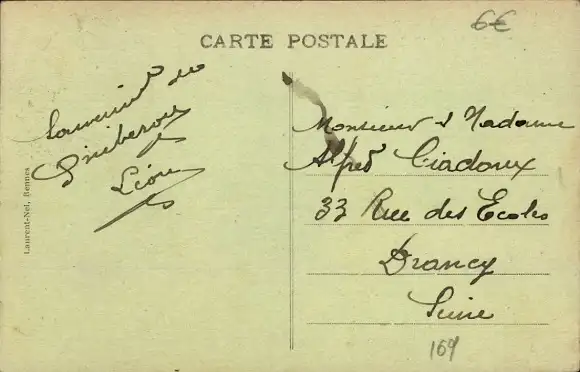 6€
CARTE POSTALE
Souvenir de
Quiberon
Léon
Laurent-Nel, Rennes
Monsieur & Madame
Alfred Ciadoux
33 Rue des Ecoles
Drancy
Seine
169